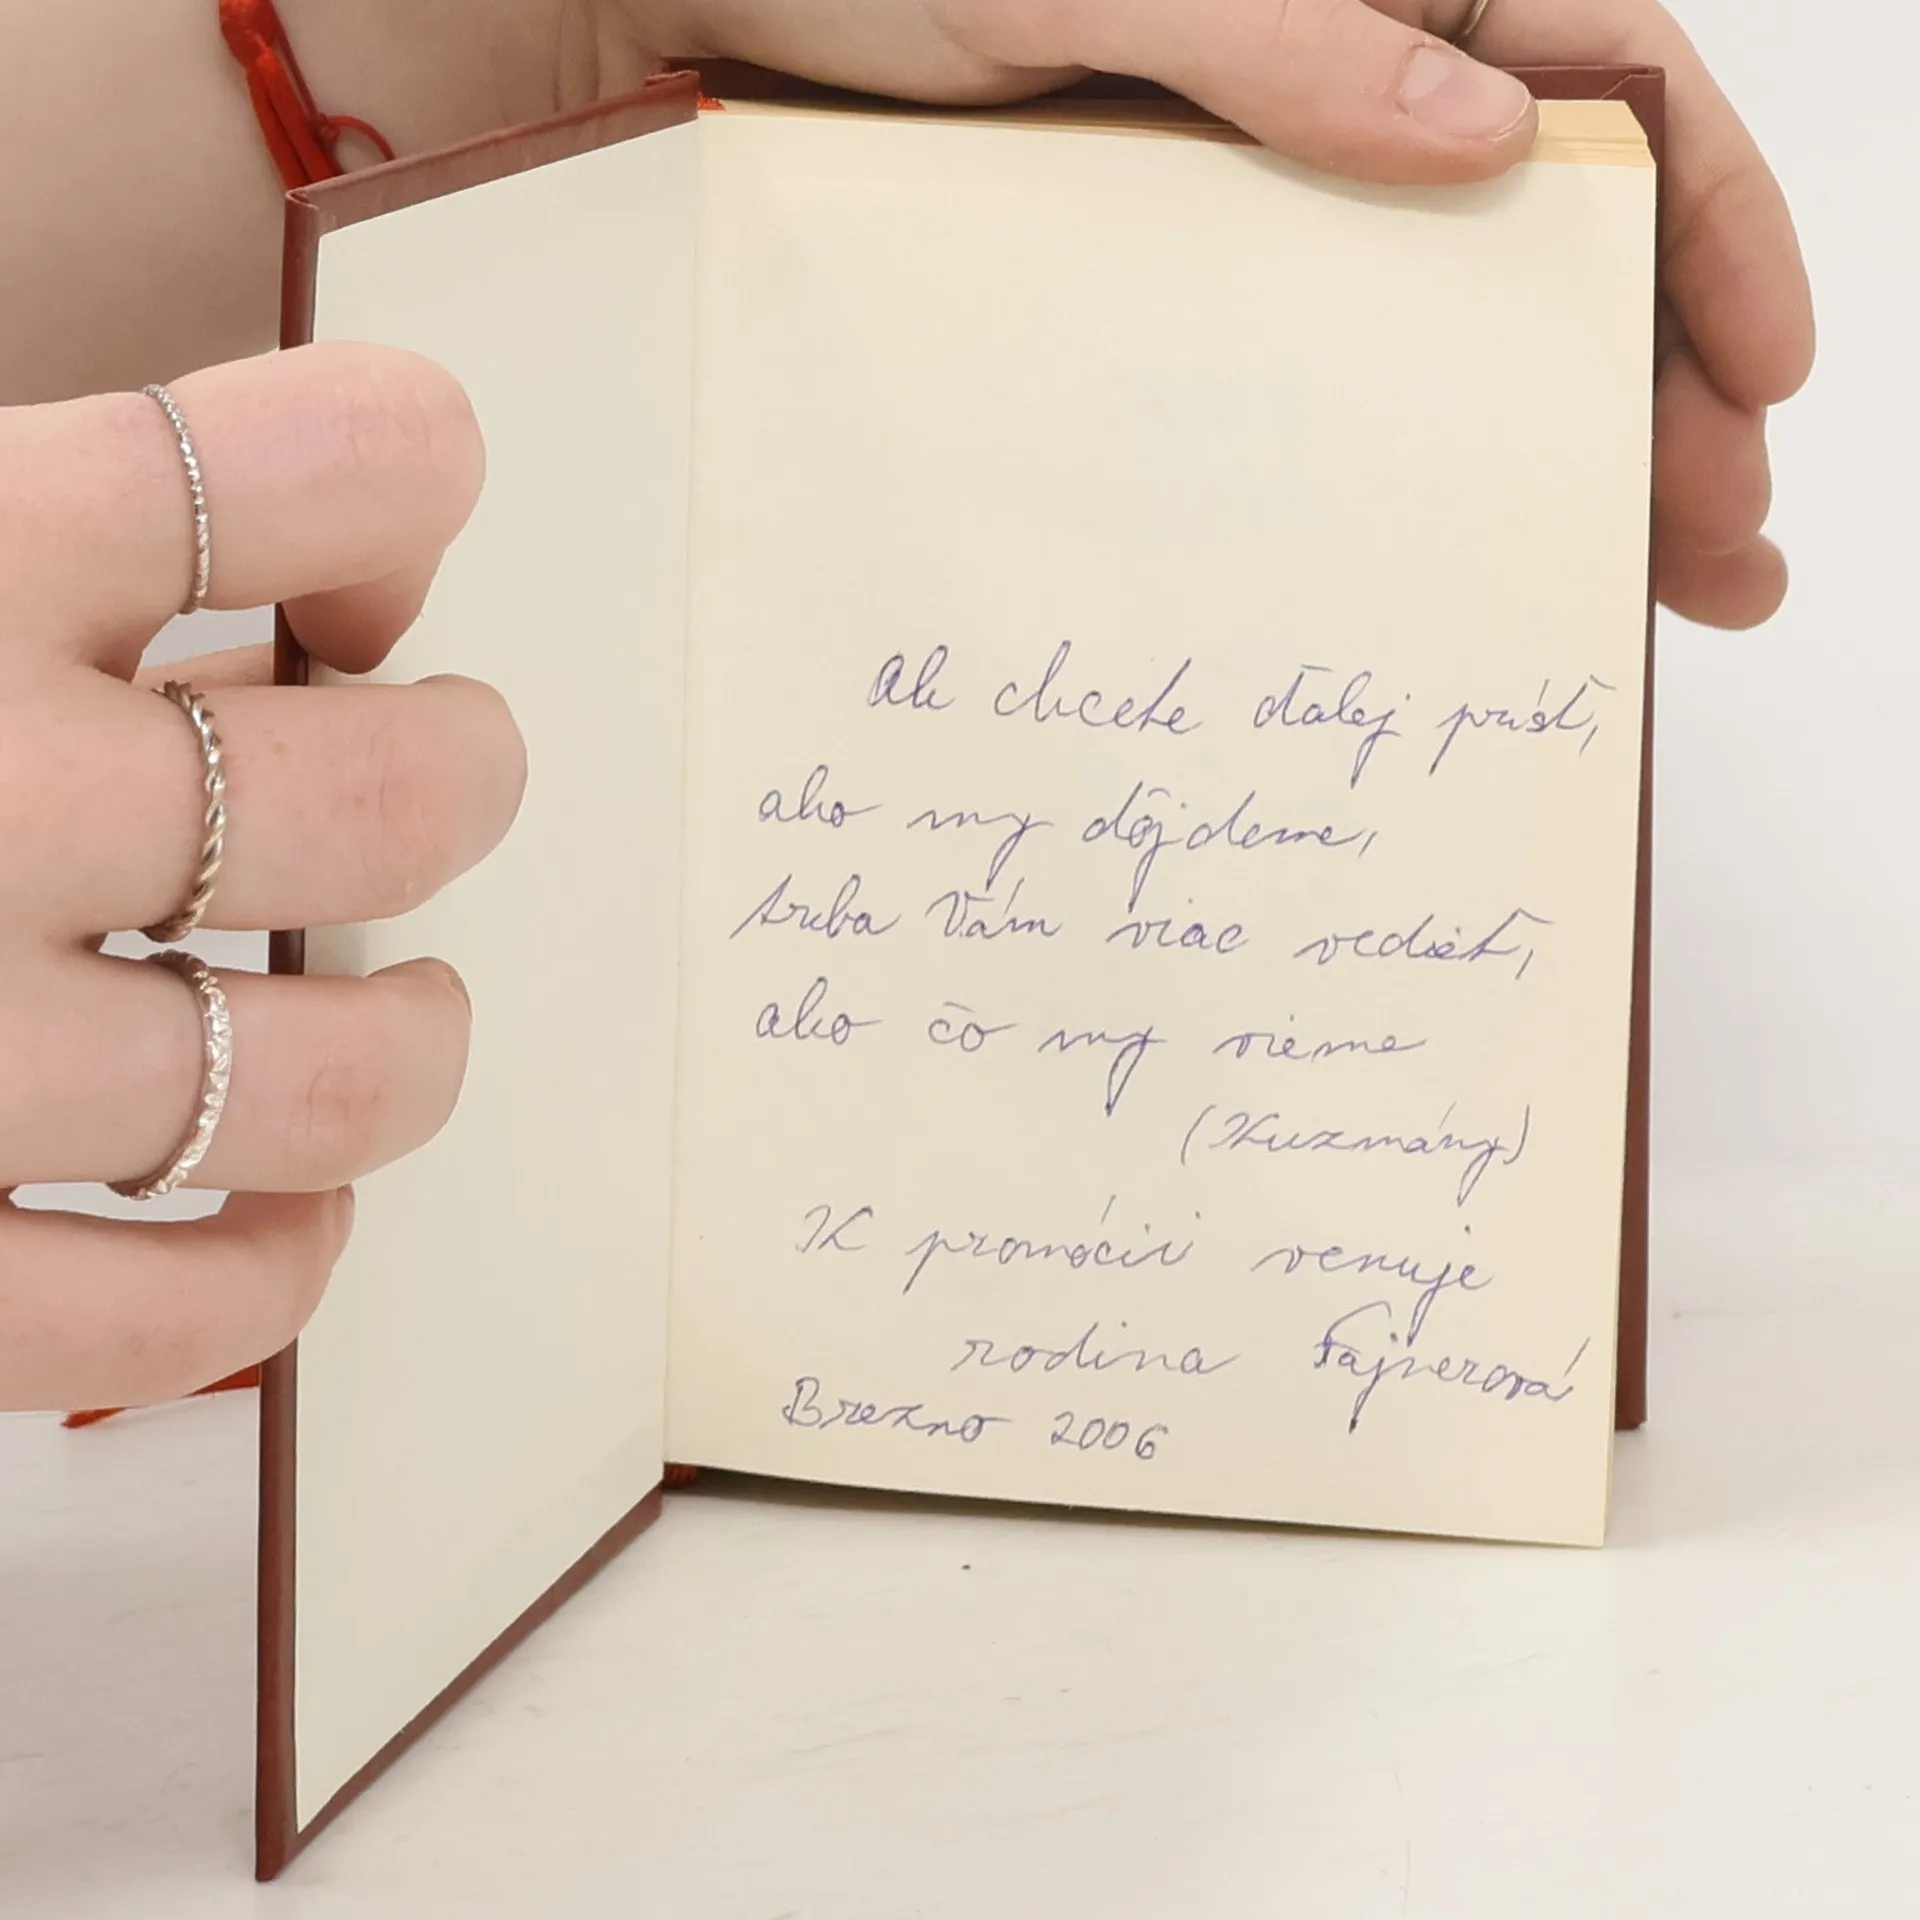 Ak chcete ďalej prísť,
ako my dôjdeme,
treba Vám viac vedieť,
ako čo my vieme
(Kuzmány)
K promócii venuje
rodina Fajnerová
Brezno 2006